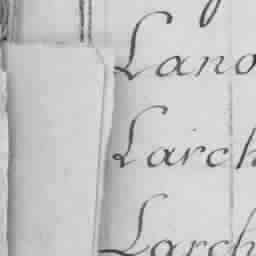 Lano
Larch
Larch